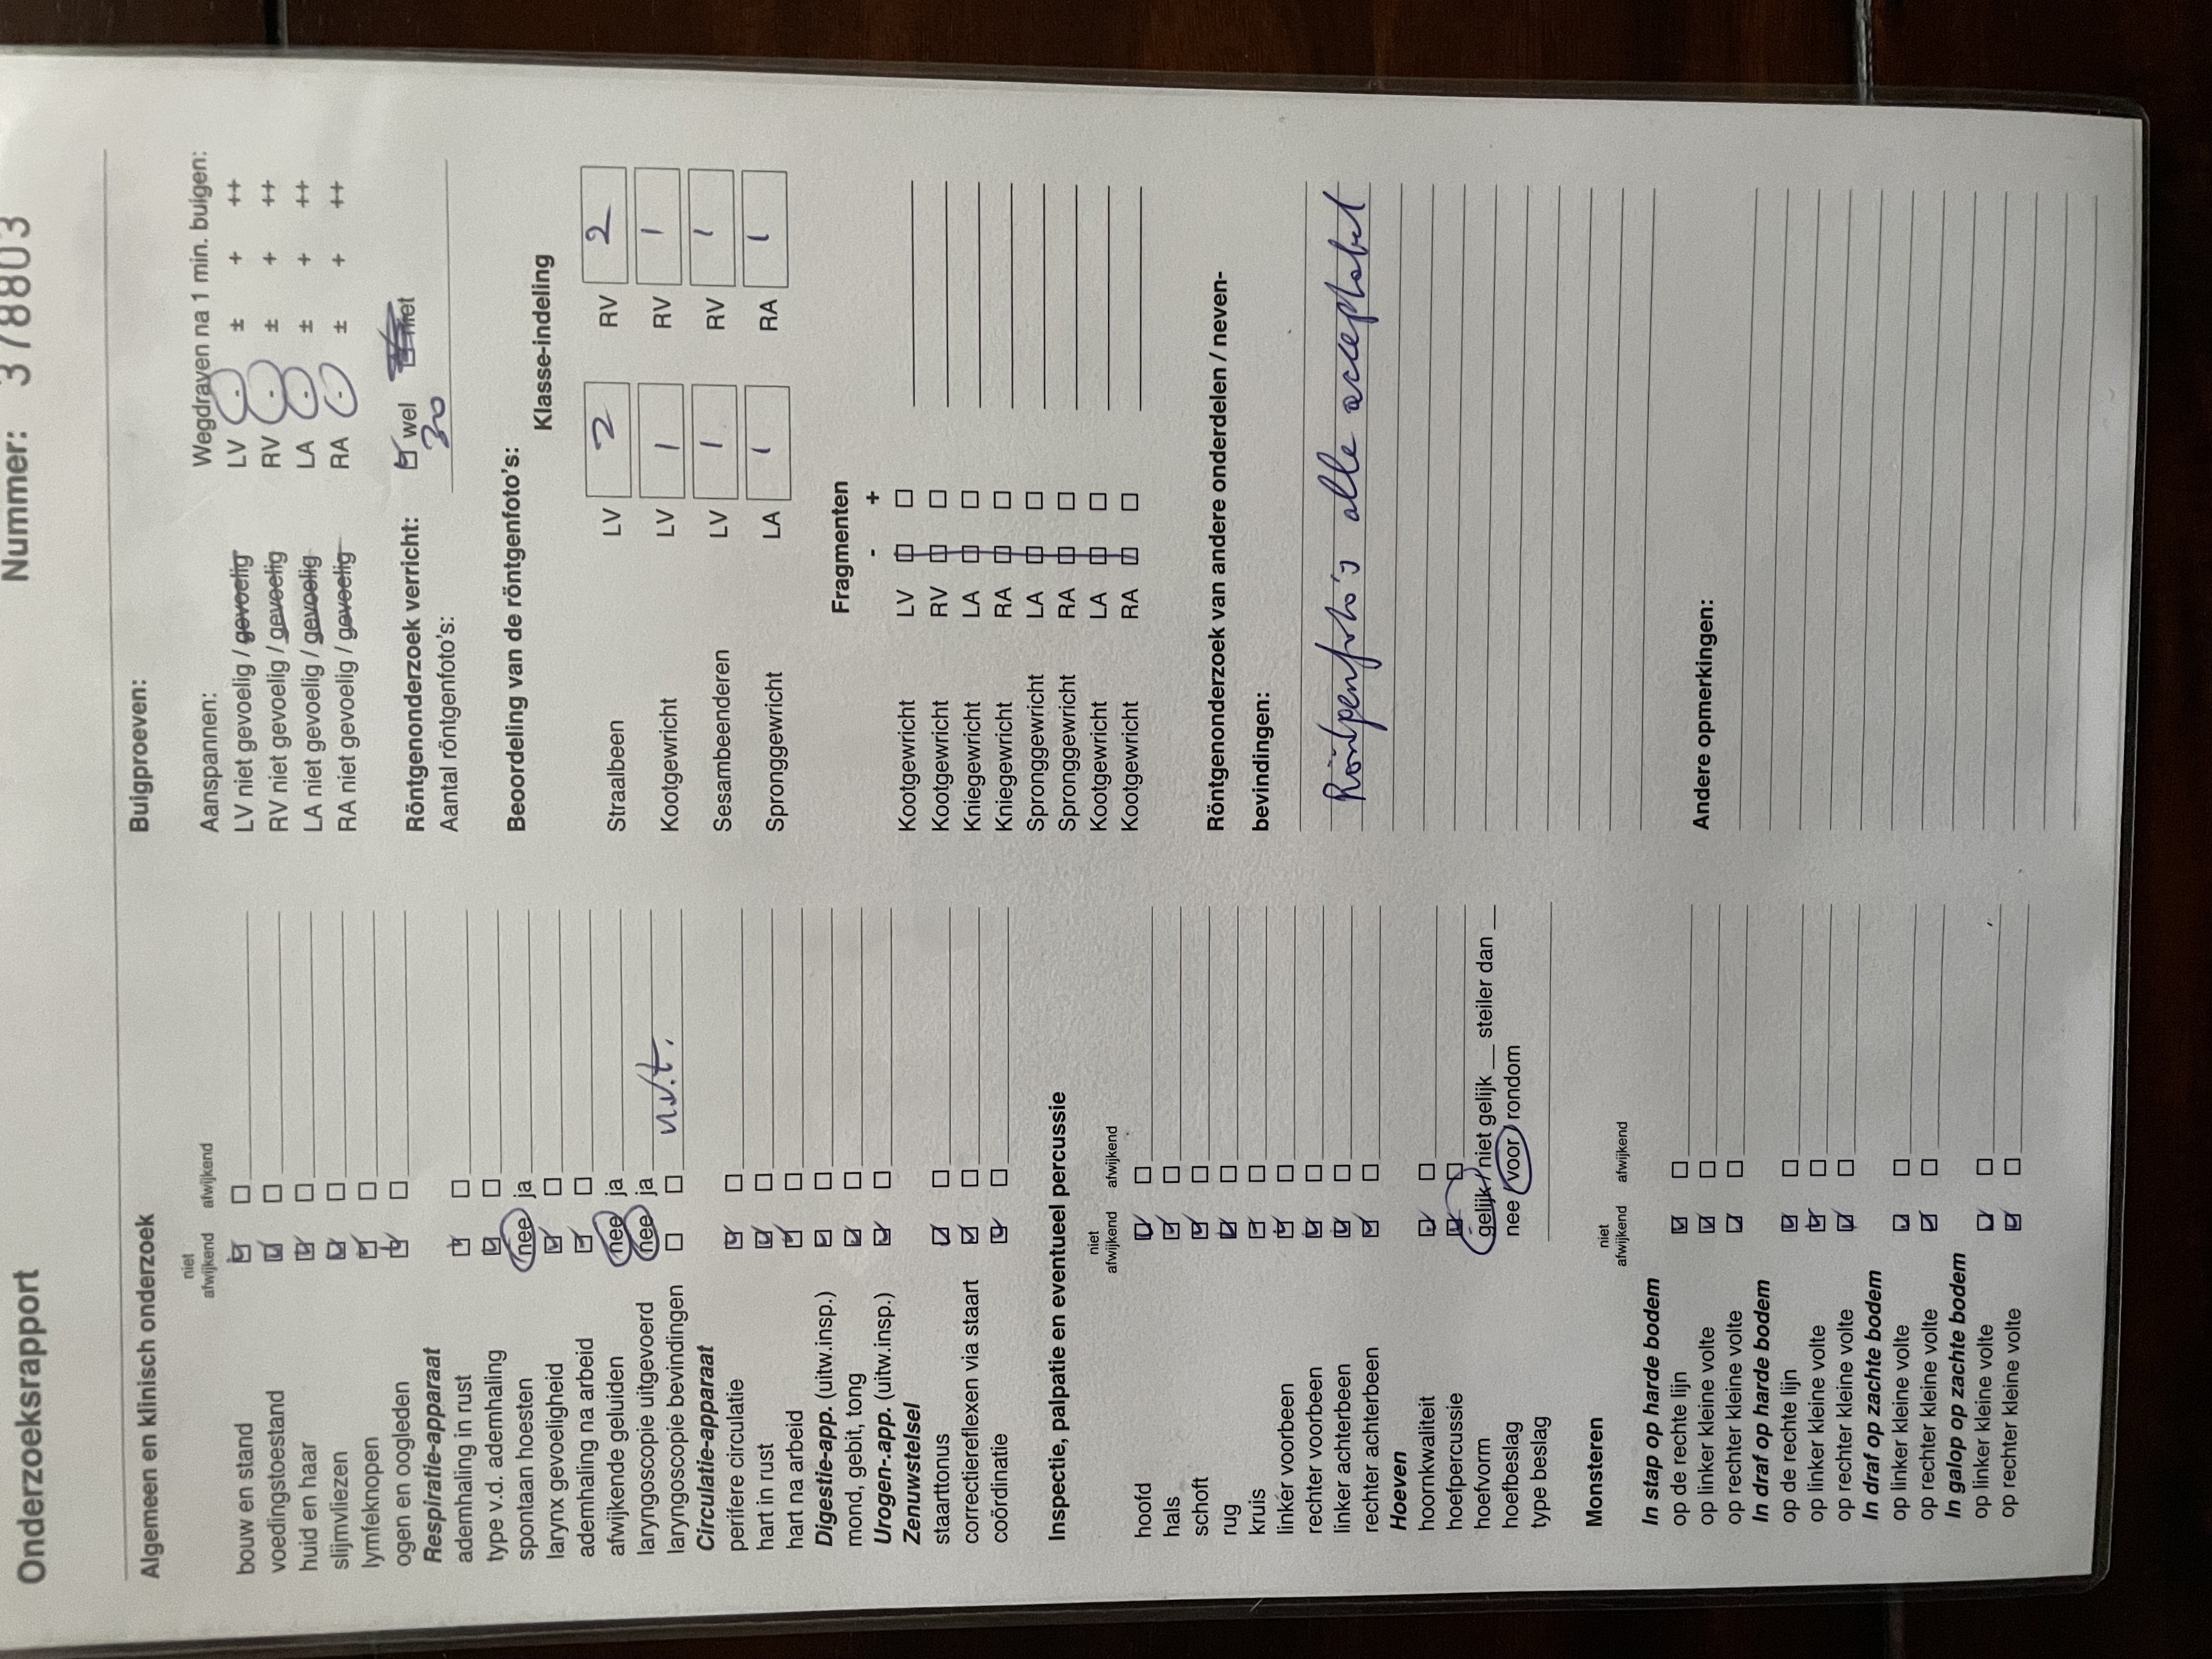 Onderzoeksrapport
Nummer: 378803
Algemeen en klinisch onderzoek
niet afwijkend afwijkend
bouw en stand
voedingstoestand
huid en haar
slijmvliezen
lymfeknopen
ogen en oogleden
Respiratie-apparaat
ademhaling in rust
type v.d. ademhaling
spontaan hoesten nee ja
larynx gevoeligheid
ademhaling na arbeid
afwijkende geluiden nee ja
laryngoscopie uitgevoerd nee ja
laryngoscopie bevindingen n.v.t.
Circulatie-apparaat
perifere circulatie
hart in rust
hart na arbeid
Digestie-app. (uitw.insp.)
mond, gebit, tong
Urogen-app. (uitw.insp.)
Zenuwstelsel
staarttonus
correctiereflexen via staart
coördinatie
Inspectie, palpatie en eventueel percussie
niet afwijkend afwijkend
hoofd
hals
schoft
rug
kruis
linker voorbeen
rechter voorbeen
linker achterbeen
rechter achterbeen
Hoeven
hoornkwaliteit
hoefpercussie
hoefvorm gelijk / niet gelijk __ steiler dan __
hoefbeslag nee voor rondom
type beslag
Monsteren
niet afwijkend afwijkend
In stap op harde bodem
op de rechte lijn
op linker kleine volte
op rechter kleine volte
In draf op harde bodem
op de rechte lijn
op linker kleine volte
op rechter kleine volte
In draf op zachte bodem
op linker kleine volte
op rechter kleine volte
In galop op zachte bodem
op linker kleine volte
op rechter kleine volte
Buigproeven:
Aanspannen: Wegdraven na 1 min. buigen:
LV niet gevoelig / gevoelig LV - ± + ++
RV niet gevoelig / gevoelig RV - ± + ++
LA niet gevoelig / gevoelig LA - ± + ++
RA niet gevoelig / gevoelig RA - ± + ++
Röntgenonderzoek verricht: wel niet
Aantal röntgenfoto's: 30
Beoordeling van de röntgenfoto's:
Klasse-indeling
Straalbeen LV 2 RV 2
Kootgewricht LV 1 RV 1
Sesambeenderen LV 1 RV 1
Spronggewricht LA 1 RA 1
Fragmenten
- +
Kootgewricht LV
Kootgewricht RV
Kniegewricht LA
Kniegewricht RA
Spronggewricht LA
Spronggewricht RA
Kootgewricht LA
Kootgewricht RA
Röntgenonderzoek van andere onderdelen / neven-
bevindingen:
Röntgenfoto's alle acceptabel
Andere opmerkingen: